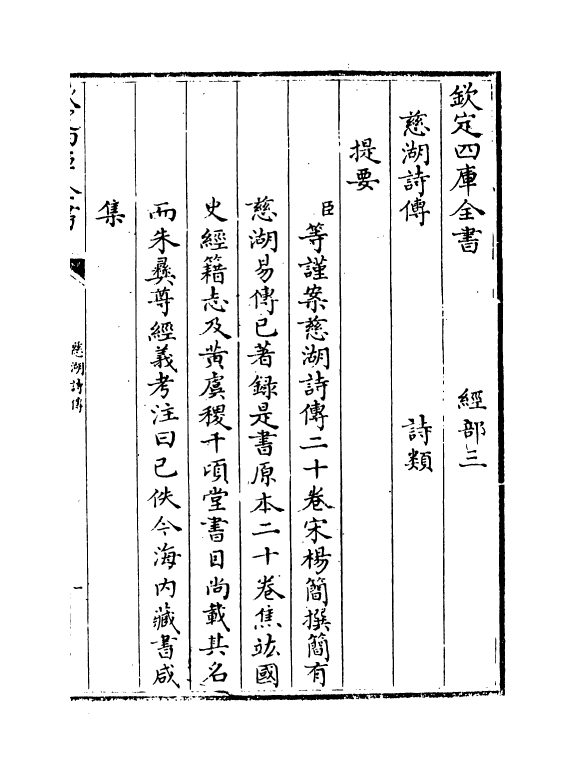 欽定四庫全書　經部三
慈湖詩傳　詩類
提要
臣等謹案慈湖詩傳二十卷宋楊簡撰簡有
慈湖易傳已著録是書原本二十卷焦竑國
史經籍志及黄虞稷千頃堂書目尚載其名
而朱彛尊經義考注曰已佚今海内藏書咸
集
慈湖詩傳　一